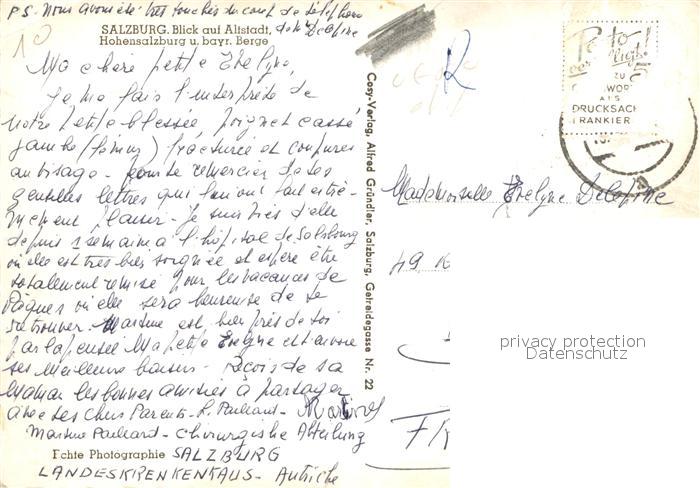 P.S. Nous avons été très touchés du coup de téléphone
de Mr Delepine
10
SALZBURG. Blick auf Altstadt,
Hohensalzburg u. bayr. Berge
Ma chère petite Evelyne,
Je me fais l'interprète de
notre petite blessée, poignet cassé
jambe (fémur) fracturée et coupures
au visage - pour te remercier de tes
gentilles lettres qui lui ont fait extrê-
mement plaisir - Je suis près d'elle
depuis 1 semaine à l'hôpital de Salsbourg
où elle est très bien soignée et espère être
totalement remise pour les vacances de
Pâques où elle sera heureuse de te
retrouver. Martine est bien près de toi
par la pensée Ma petite Evelyne et t'envoie
ses meilleurs baisers - Reçois de sa
Maman les bonnes amitiés à partager
avec tes chers Parents - Pailhard - Martine
Martine Pailhard - Chirurgische Abteilung
Echte Photographie SALZBURG
LANDESKRENKENHAUS - Autriche
Cosy-Verlag, Alfred Gründler, Salzburg, Getreidegasse Nr. 22
R
ZU
ALS
DRUCKSACH
FRANKIER
Mademoiselle Evelyne Delepine
49
privacy protection
Datenschutz